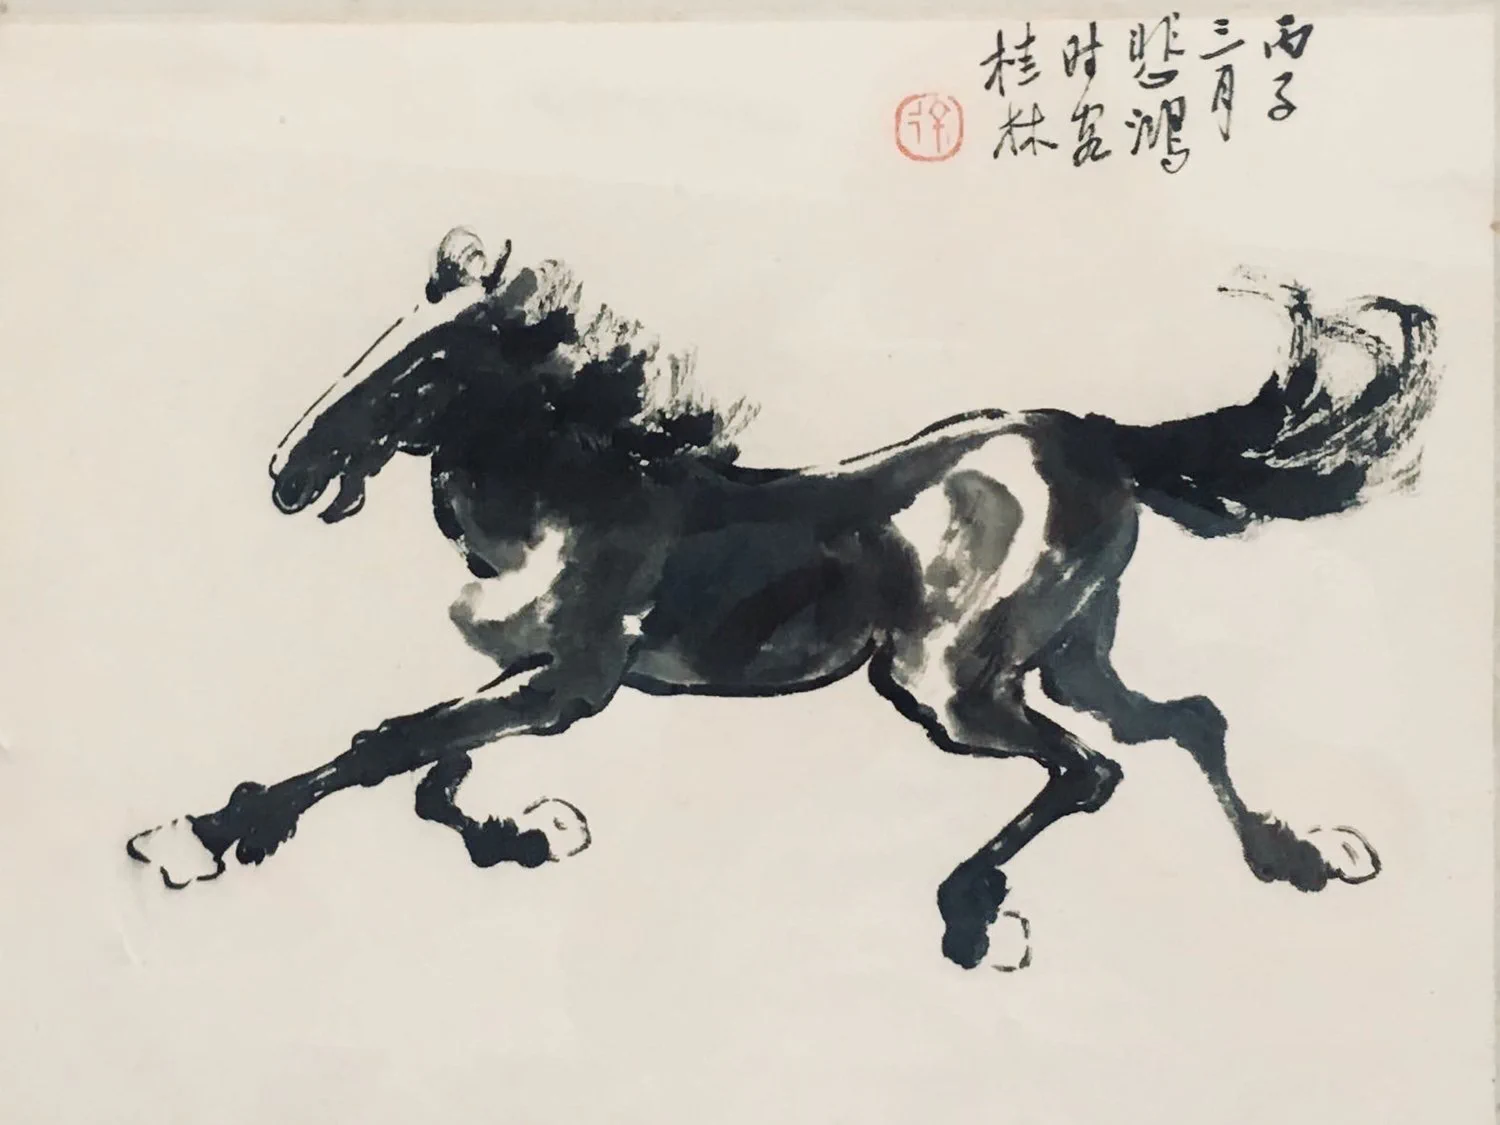 丙子
三月
悲鸿
时客
桂林
徐